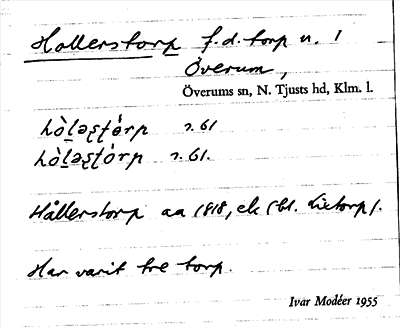 Hallerstorp f.d. torp u. 1
Överum,
Överums sn, N. Tjusts hd, Klm. l.
hòḷəʂtórp ⁊. 61
hòḷəʂtórp ⁊. 61.
Hållerstorp aa 1818, ek (bl. Lixtorp).
Har varit tre torp.
Ivar Modéer 1955